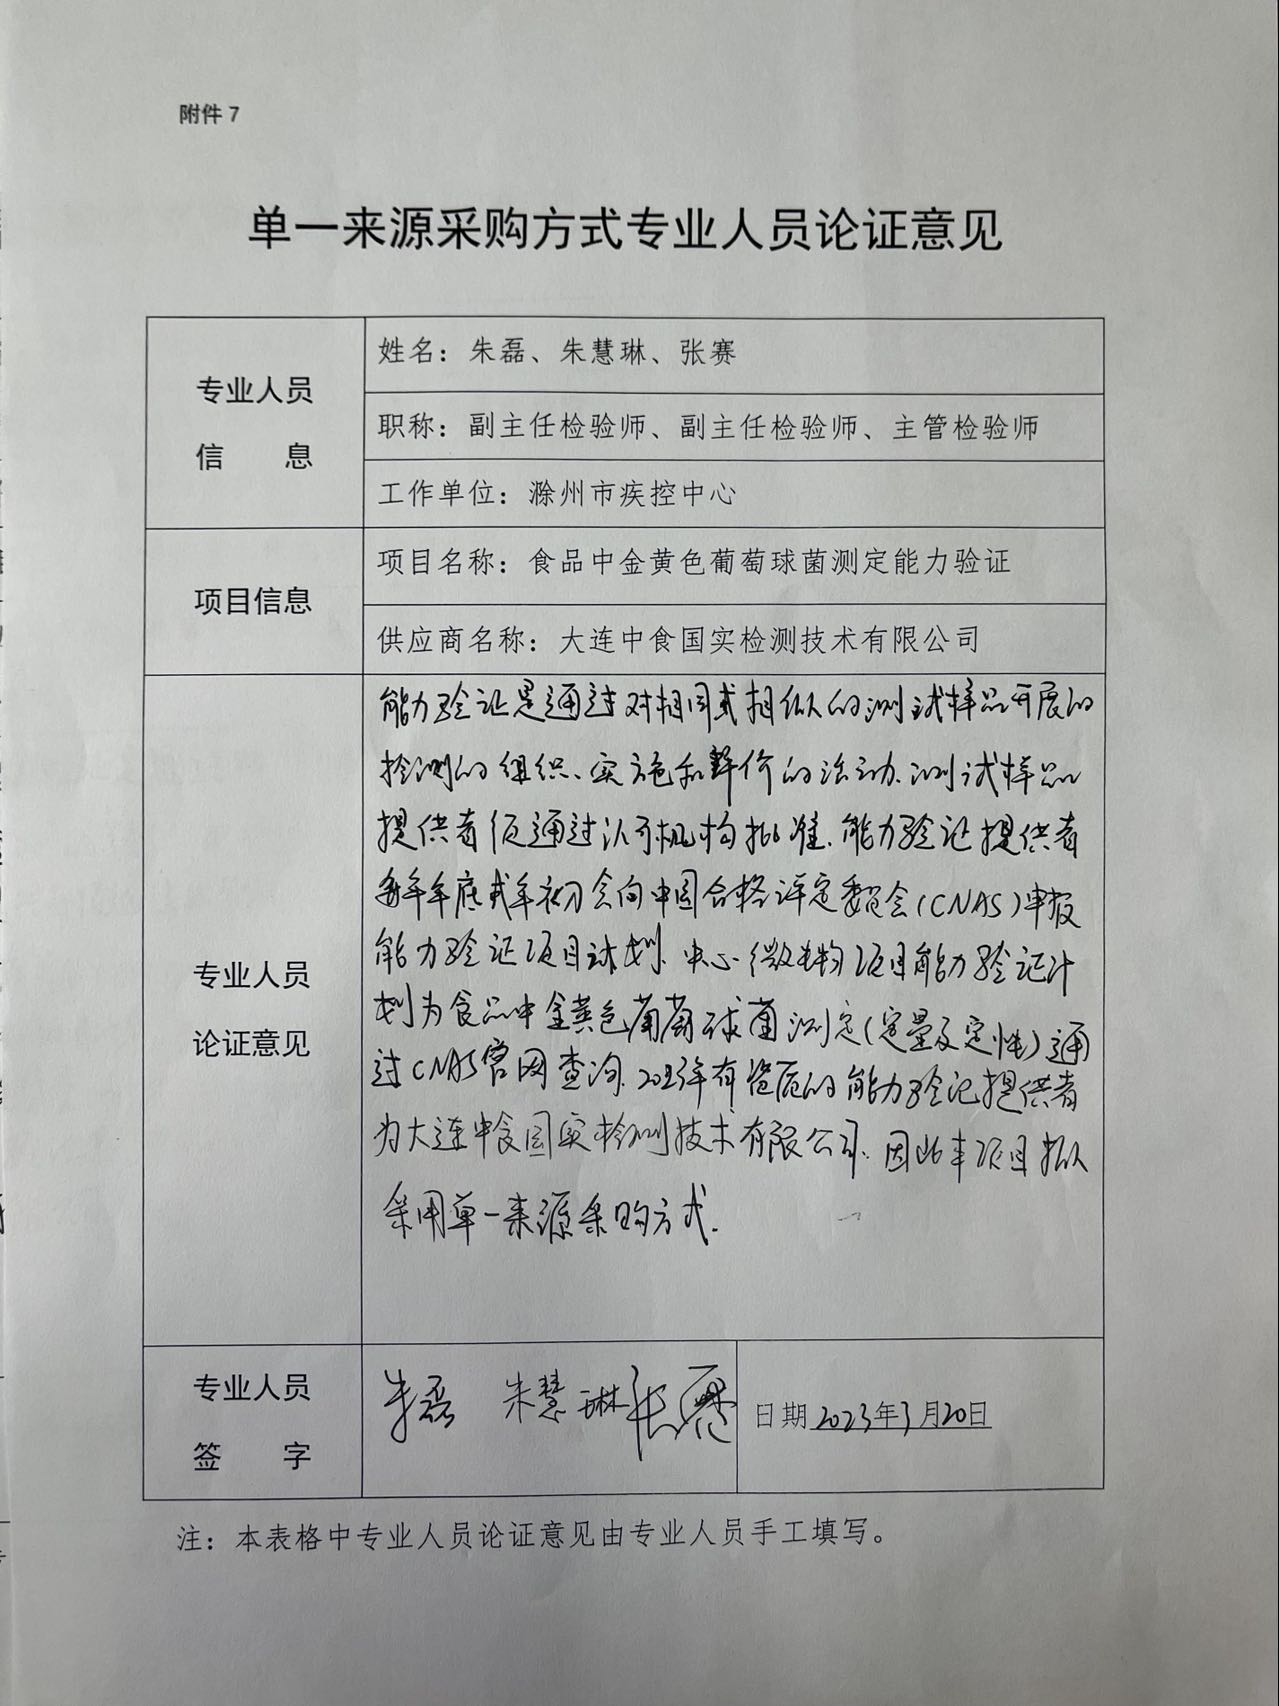 附件 7
单一来源采购方式专业人员论证意见
专业人员
信 息
姓名：朱磊、朱慧琳、张赛
职称：副主任检验师、副主任检验师、主管检验师
工作单位：滁州市疾控中心
项目信息
项目名称：食品中金黄色葡萄球菌测定能力验证
供应商名称：大连中食国实检测技术有限公司
专业人员
论证意见
能力验证是通过对相同或相似的测试样品开展的
检测的组织、实施和评价的活动.测试样品
提供者须通过认可机构批准.能力验证提供者
每年年底或年初会向中国合格评定委员会(CNAS)申报
能力验证项目计划.中心微生物项目能力验证计
划为食品中金黄色葡萄球菌测定(定量及定性)通
过CNAS官网查询.2023年有资质的能力验证提供者
为大连中食国实检测技术有限公司.因此本项目拟
采用单一来源采购方式.
专业人员
签 字
朱磊 朱慧琳 张赛
日期 2023年3月20日
注：本表格中专业人员论证意见由专业人员手工填写。